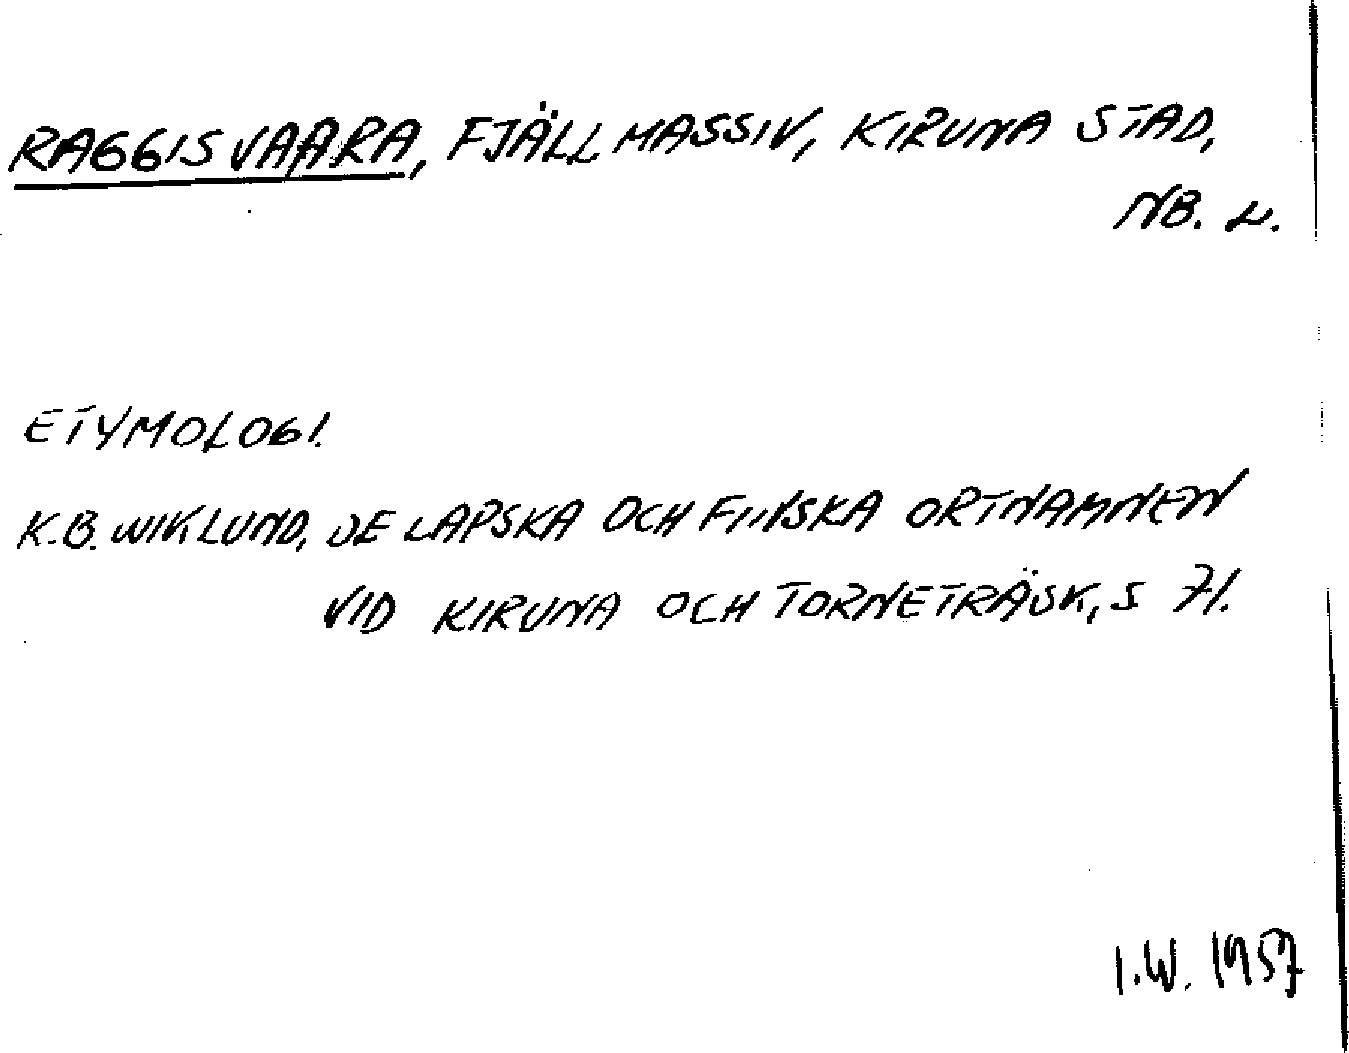 RAGGISVAARA, FJÄLLMASSIV, KIRUNA STAD,
NB. L.
ETYMOLOGI.
K.B. WIKLUND, DE LAPSKA OCH FINSKA ORTNAMNEN
VID KIRUNA OCH TORNETRÄSK, S 71.
I.W. 1957